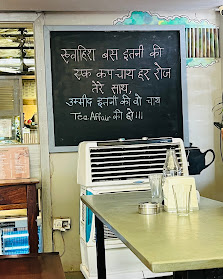 ख्वाहिश बस इतनी की
एक कप चाय हर रोज
तेरे साथ,
उम्मीद इतनी की वो चाय
Tea Affair की हो !!!